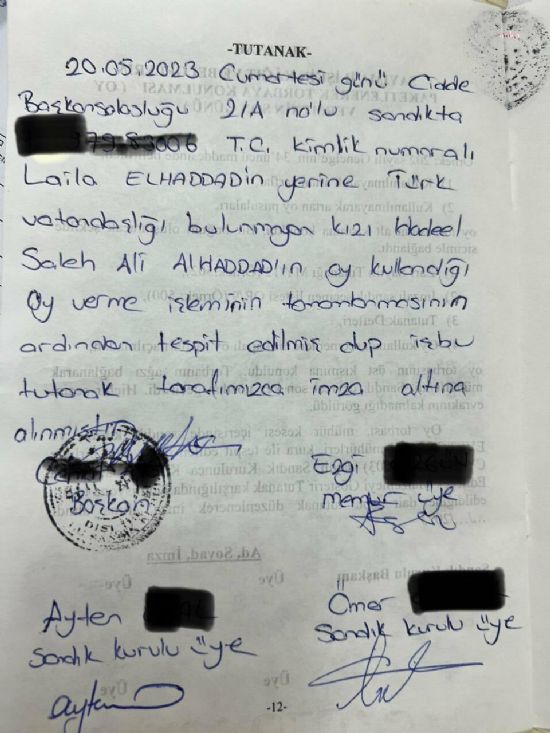 -TUTANAK-
20.05.2023 Cumartesi günü Cidde
Başkonsolosluğu 2/A no'lu sandıkta
T.C. kimlik numaralı
Laila ELHADDAD'in yerine Türk
vatandaşlığı bulunmayan kızı Hadeel
Saleh Ali AlHADDAD'ın oy kullandığı
oy verme işleminin tamamlanmasının
ardından tespit edilmiş olup işbu
tutanak tarafımızca imza altına
alınmıştır.
Başkan
Ezgi
memur üye
Ayten
sandık kurulu üye
Ömer
sandık kurulu üye
ayten
-12-